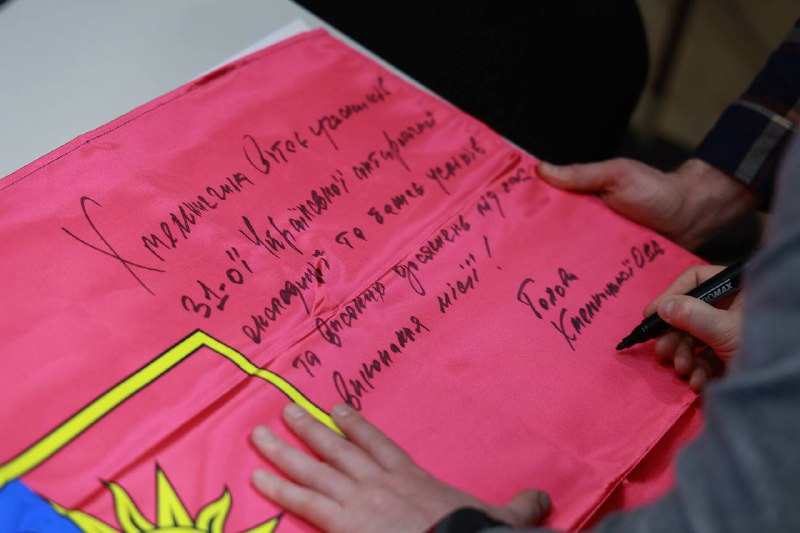 Хмельниччина вітає учасників
31-ої Української антарктичної
експедиції та бажає успіхів
та високих досягнень під час
виконання місії!
Голова
Хмельницької ОВА
OMAX